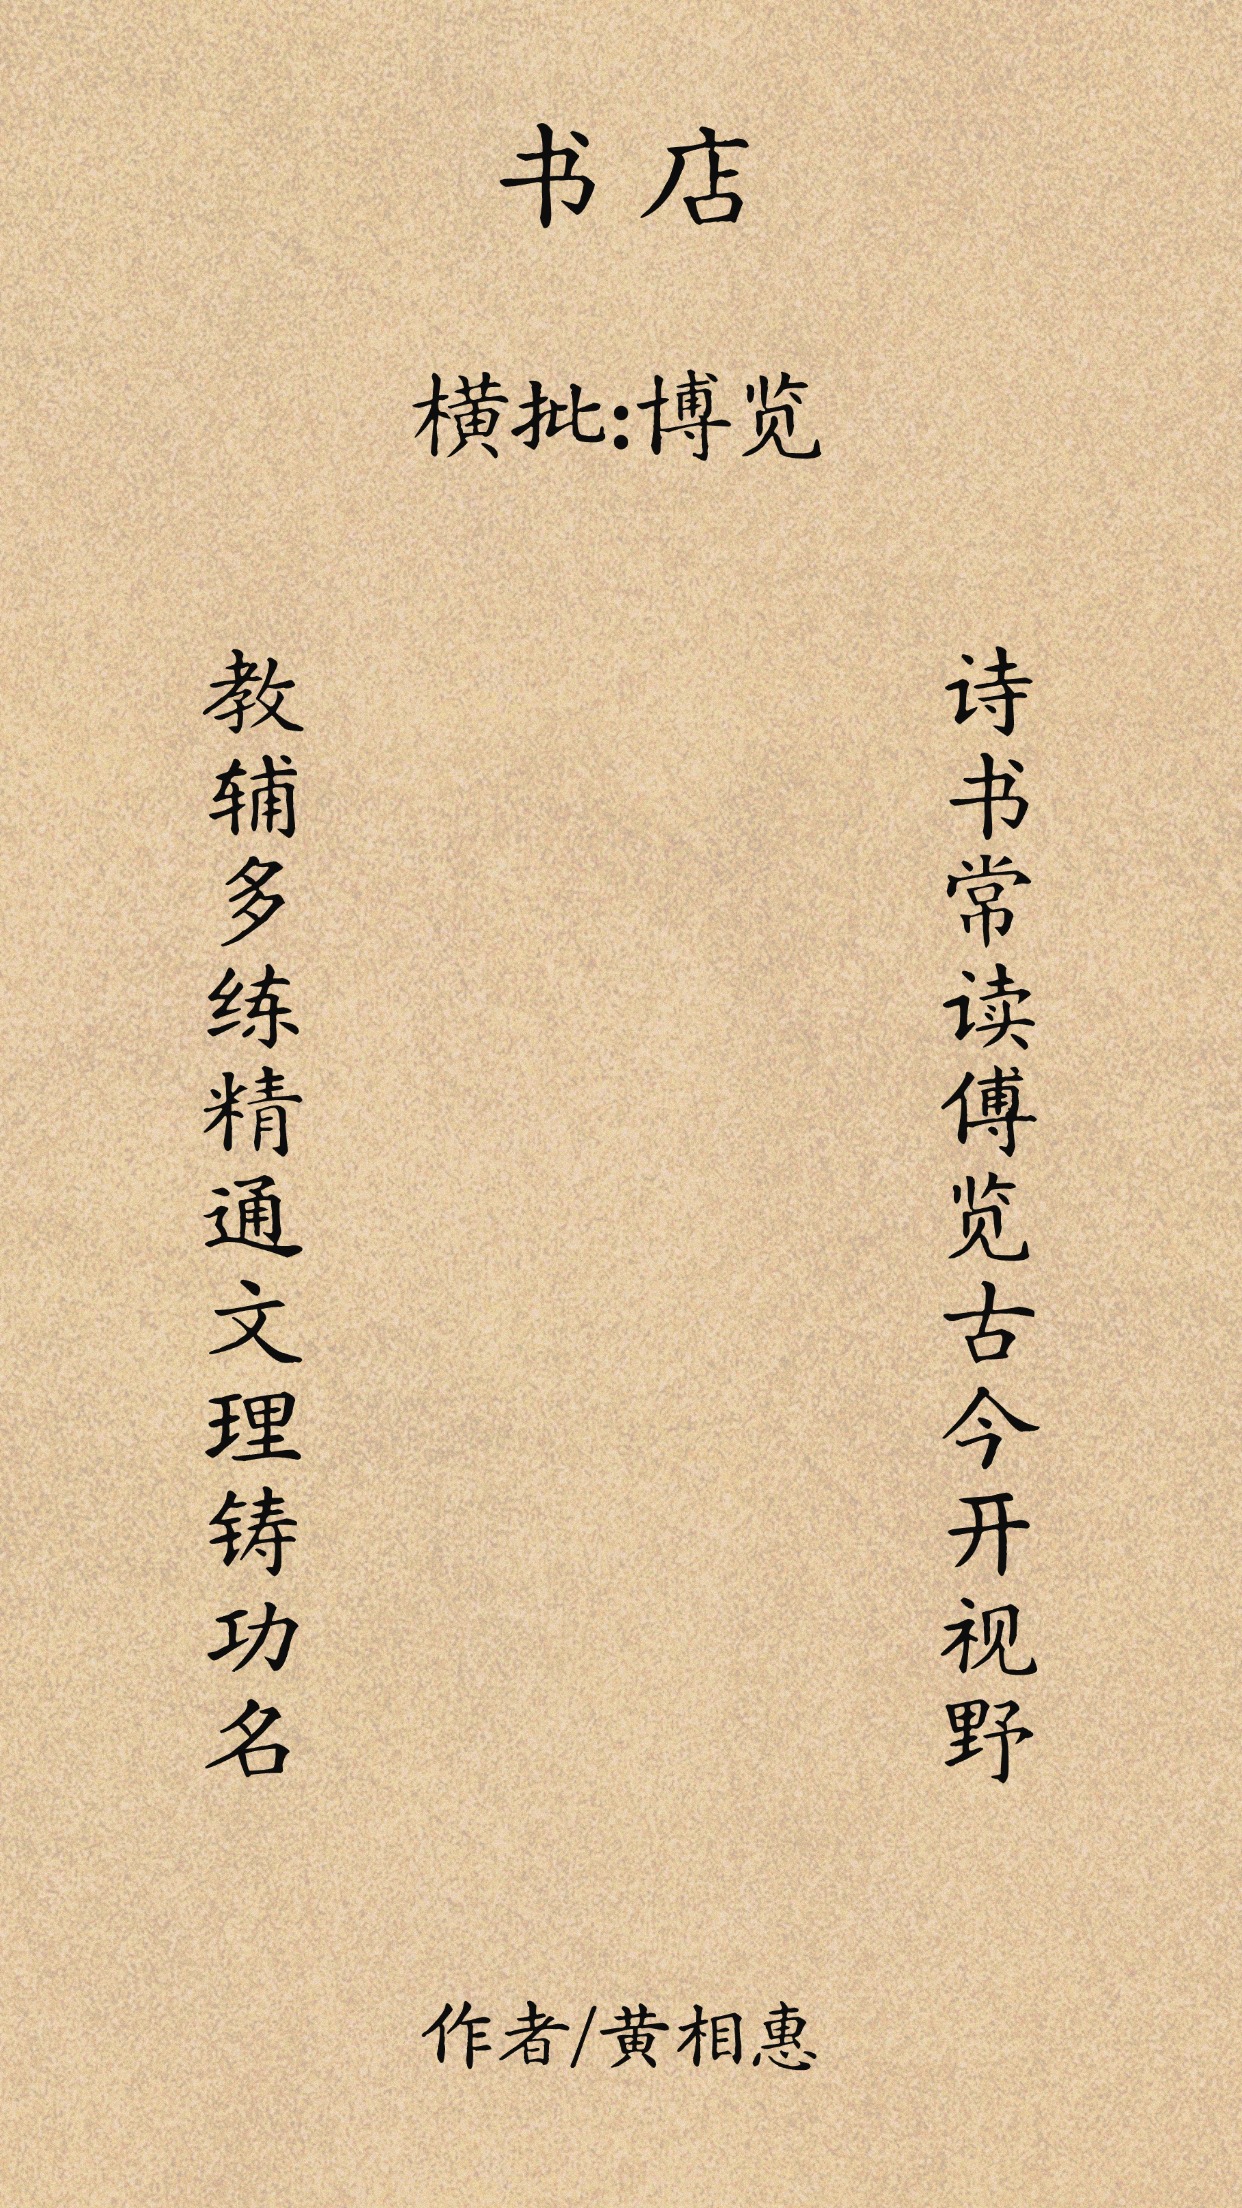 书店
横批:博览
诗书常读傅览古今开视野
教辅多练精通文理铸功名
作者/黄相惠